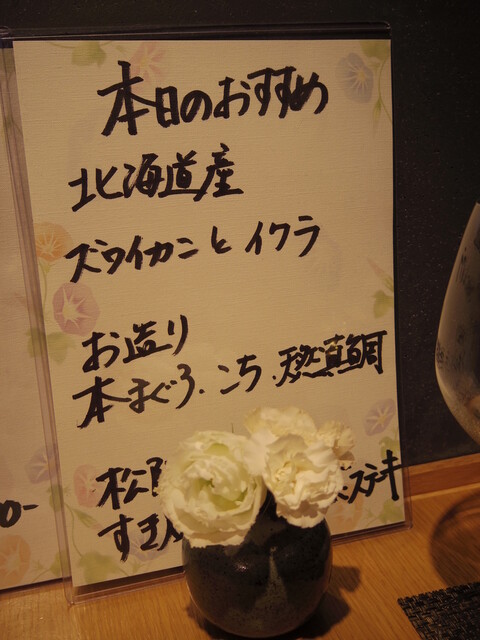 本日のおすすめ
北海道産
ズワイカニと イクラ
お造り
本まぐろ.こち.天然真鯛
松
ステーキ
すき